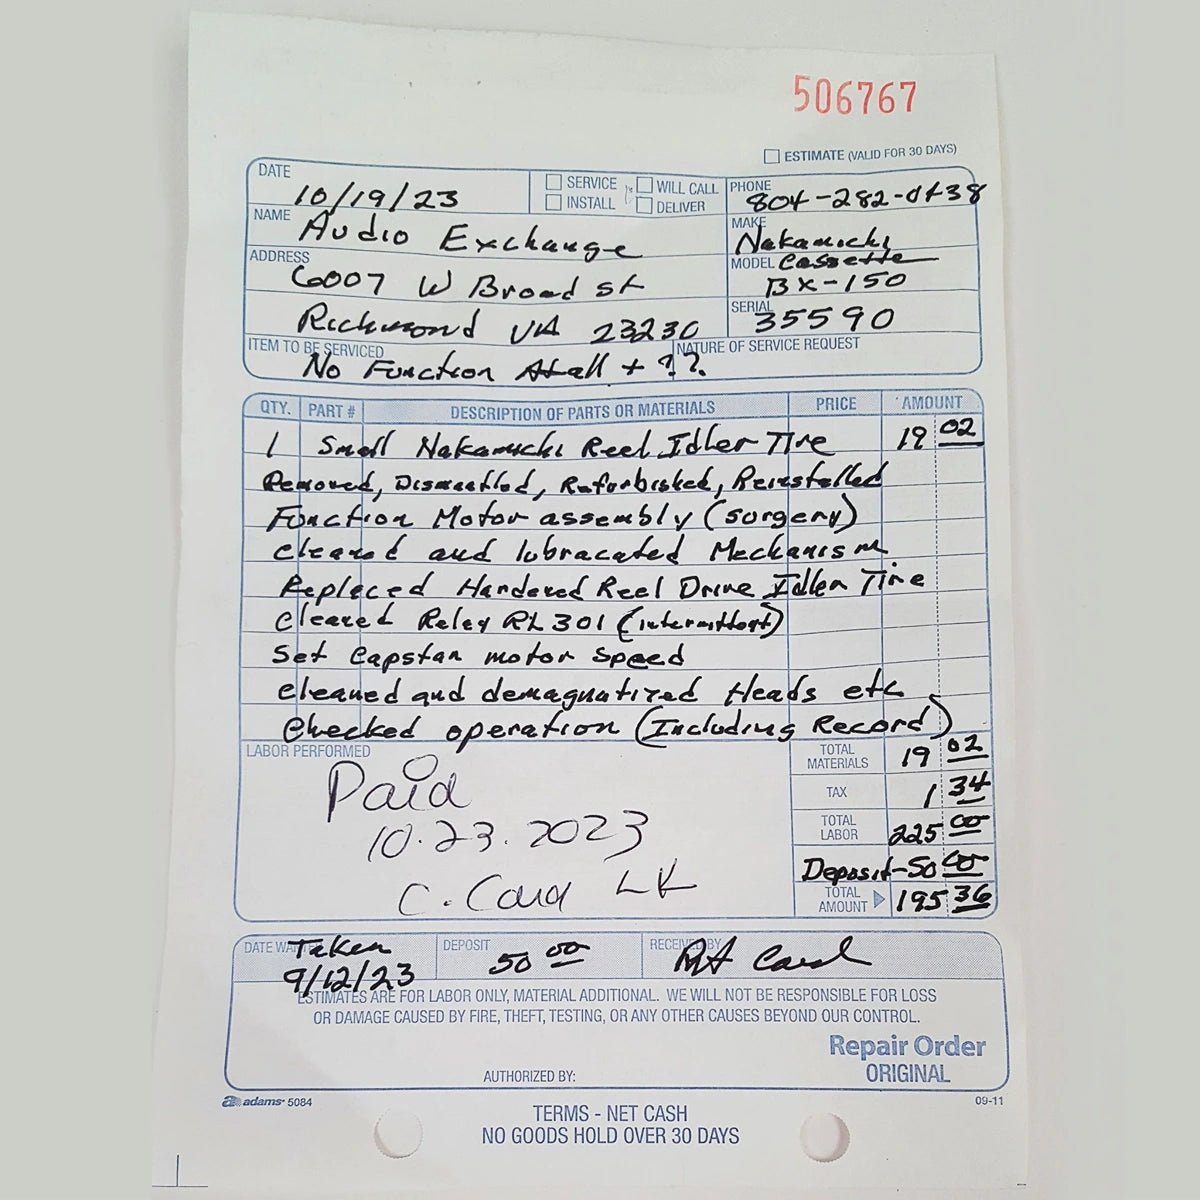 506767
ESTIMATE (VALID FOR 30 DAYS)
DATE 10/19/23
SERVICE WILL CALL
INSTALL DELIVER
PHONE 804-282-0438
NAME Audio Exchange
MAKE Nakamichi
ADDRESS 6007 W Broad St
MODEL Cassette
BX-150
Richmond VA 23230
SERIAL 35590
ITEM TO BE SERVICED NATURE OF SERVICE REQUEST
No Function At all + ??
QTY. PART # DESCRIPTION OF PARTS OR MATERIALS PRICE AMOUNT
1 Small Nakamichi Reel Idler Tire 19 02
Removed, Dismantled, Refurbished, Reinstalled
Function Motor assembly (surgery)
cleaned and lubracated Mechanism
Replaced Hardened Reel Drive Idler Tire
cleaned Relay RL301 (intermittent)
Set Capstan motor Speed
cleaned and demagnatized Heads etc
Checked operation (Including Record)
LABOR PERFORMED
TOTAL MATERIALS 19 02
Paid
TAX 1 34
10.23.2023
TOTAL LABOR 225 00
Deposit -50 00
C. Card LK
TOTAL AMOUNT 195 36
DATE WANTED Taken
9/12/23
DEPOSIT 50 00
RECEIVED BY Card
ESTIMATES ARE FOR LABOR ONLY, MATERIAL ADDITIONAL. WE WILL NOT BE RESPONSIBLE FOR LOSS
OR DAMAGE CAUSED BY FIRE, THEFT, TESTING, OR ANY OTHER CAUSES BEYOND OUR CONTROL.
Repair Order
ORIGINAL
AUTHORIZED BY:
adams 5084
09-11
TERMS - NET CASH
NO GOODS HOLD OVER 30 DAYS